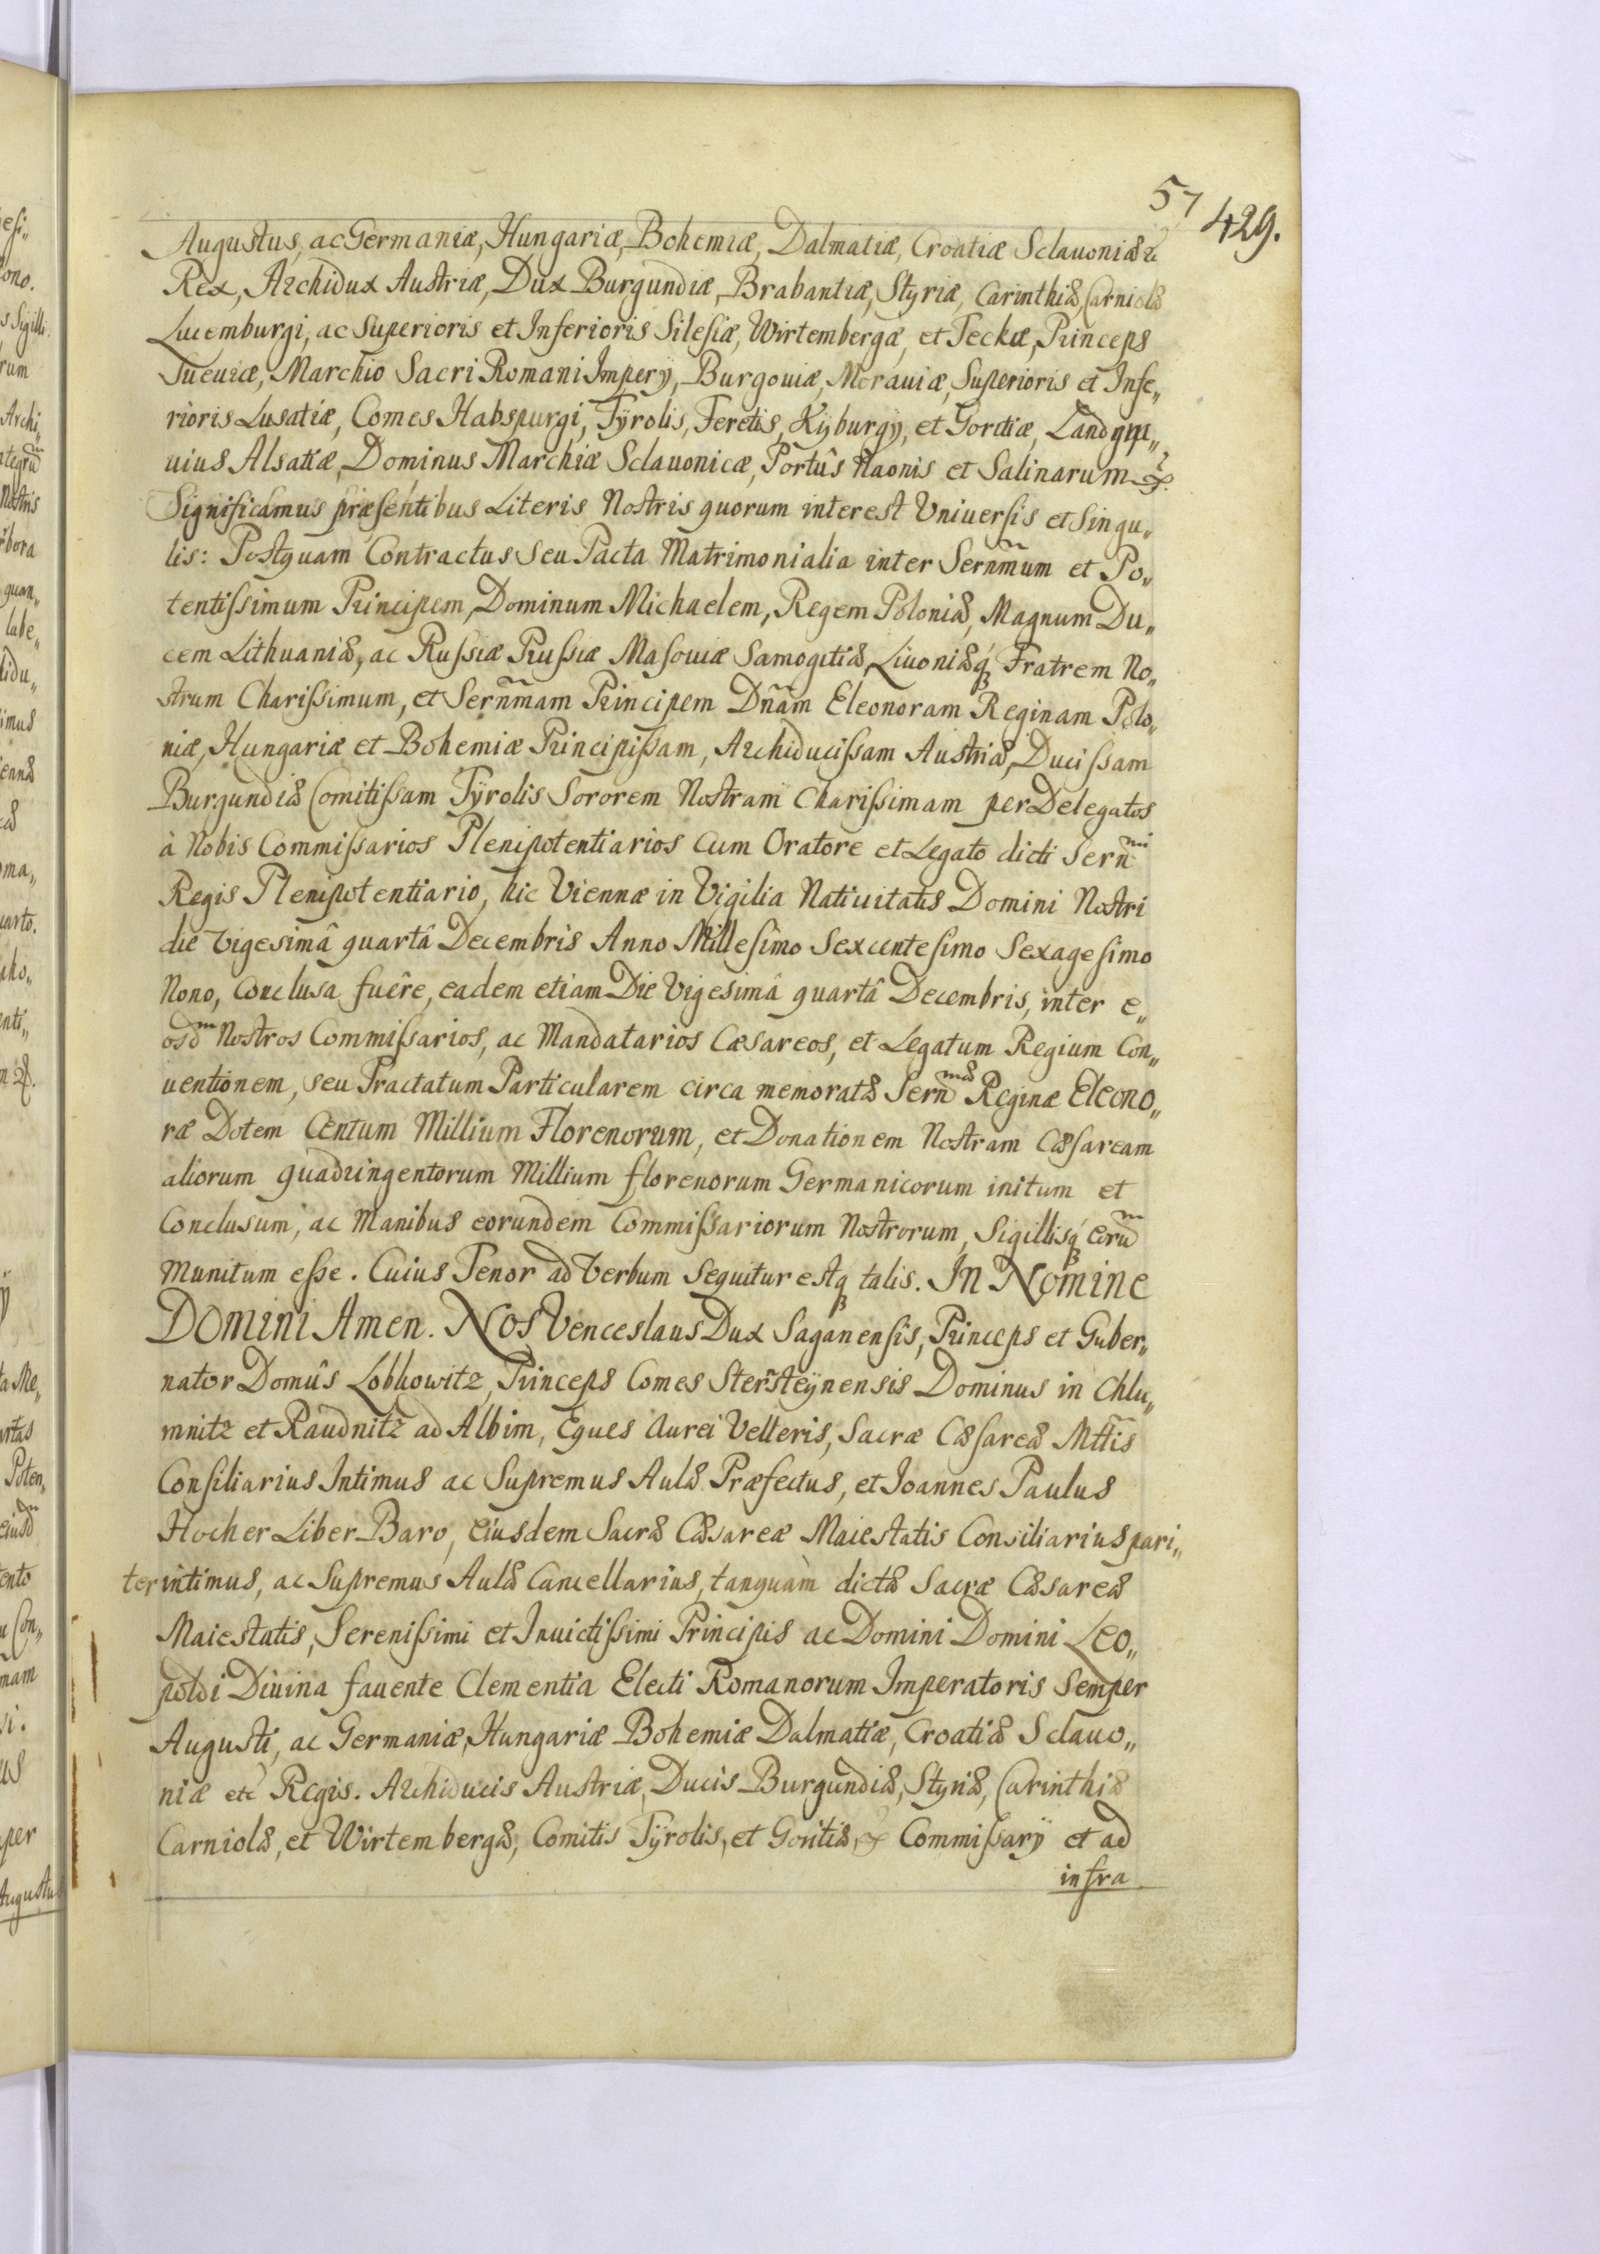 57
429.
Augustus, ac Germaniæ, Hungariæ, Bohemiæ, Dalmatiæ, Croatiæ Sclauoniæ &c
Rex, Archidux Austriæ, Dux Burgundiæ, Brabantiæ, Styriæ, Carinthiæ, Carniolæ
Lucemburgi, ac Superioris et Inferioris Silesiæ, Wirtembergæ, et Teckæ, Princeps
Sueuiæ, Marchio Sacri Romani Impery, Burgouiæ, Morauiæ, Superioris et Infe„
rioris Lusatiæ, Comes Habspurgi, Tÿrolis, Feretis, Kÿburgÿ, et Goritiæ, Landgra„
uius Alsatiæ, Dominus Marchiæ Sclauonicæ, Portûs Naonis et Salinarum &.
Significamus præsentibus Literis Nostris quorum interest Vniuersis et Singu„
lis: Postquam Contractus seu Pacta Matrimonialia inter Sernm̃um et Po„
tentissimum Principem, Dominum Michaelem, Regem Poloniæ, Magnum Du„
cem Lithuaniæ, ac Russiæ Prussiæ Masouiæ Samogitiæ, Liuoniæq́ Fratrem No„
strum Charissimum, et Sernm̃am Principem Dñam Eleonoram Reginam Polo„
niæ, Hungariæ et Bohemiæ Principissam, Archiducissam Austriæ, Ducissam
Burgundiæ Comitissam Tÿrolis Sororem Nostram Charissimam per Delegatos
à Nobis Commissarios Plenipotentiarios cum Oratore et Legato dicti Sern̄mi
Regis Plenipotentiario, hic Viennæ in Vigilia Natiuitatis Domini Nostri
die Vigesimâ quartâ Decembris Anno Millesimo Sexcentesimo Sexagesimo
Nono, Conclusa fuêre, eadem etiam Die Vigesimâ quartâ Decembris, inter e„
osdm Nostros Commissarios, ac Mandatarios Cæsareos, et Legatum Regium Con„
uentionem, seu Tractatum Particularem circa memoratæ Sernmæ Reginæ Eleono„
ræ Dotem Centum Millium Florenorum, et Donationem Nostram Cæsaream
aliorum quadringentorum Millium florenorum Germanicorum initum et
Conclusum, ac Manibus eorundem Commissariorum Nostrorum, Sigillisq́ eorudm
Munitum esse. Cuius Tenor ad Verbum sequitur estq talis. In Nomine
Domini Amen. Nos Venceslaus Dux Saganensis, Princeps et Guber„
nator Domûs Lobkowitz, Princeps Comes Sternsteÿnensis Dominus in Chlu„
mnitz et Raudnitz ad Albim, Eques Aurei Velleris, Sacræ Cæsareæ Mttis
Consiliarius Intimus ac Supremus Aulæ Præfectus, et Ioannes Paulus
Hocher Liber Baro, Eiusdem Sacræ Cæsareæ Maiestatis Consiliarius pari„
ter intimus, ac Supremus Aulæ Cancellarius, tanquàm dictæ Sacræ Cæsareæ
Maiestatis, Serenissimi et Inuictissimi Principis ac Domini Domini Leo„
poldi Diuina fauente Clementia Electi Romanorum Imperatoris Semper
Augusti, ac Germaniæ, Hungariæ Bohemiæ Dalmatiæ, Croatiæ Sclauo„
niæ etc Regis. Archiducis Austriæ, Ducis Burgundiæ, Styriæ, Carinthiæ
Carniolæ, et Wirtembergæ, Comitis Tÿrolis, et Goritiæ, & Commissarÿ et ad
infra